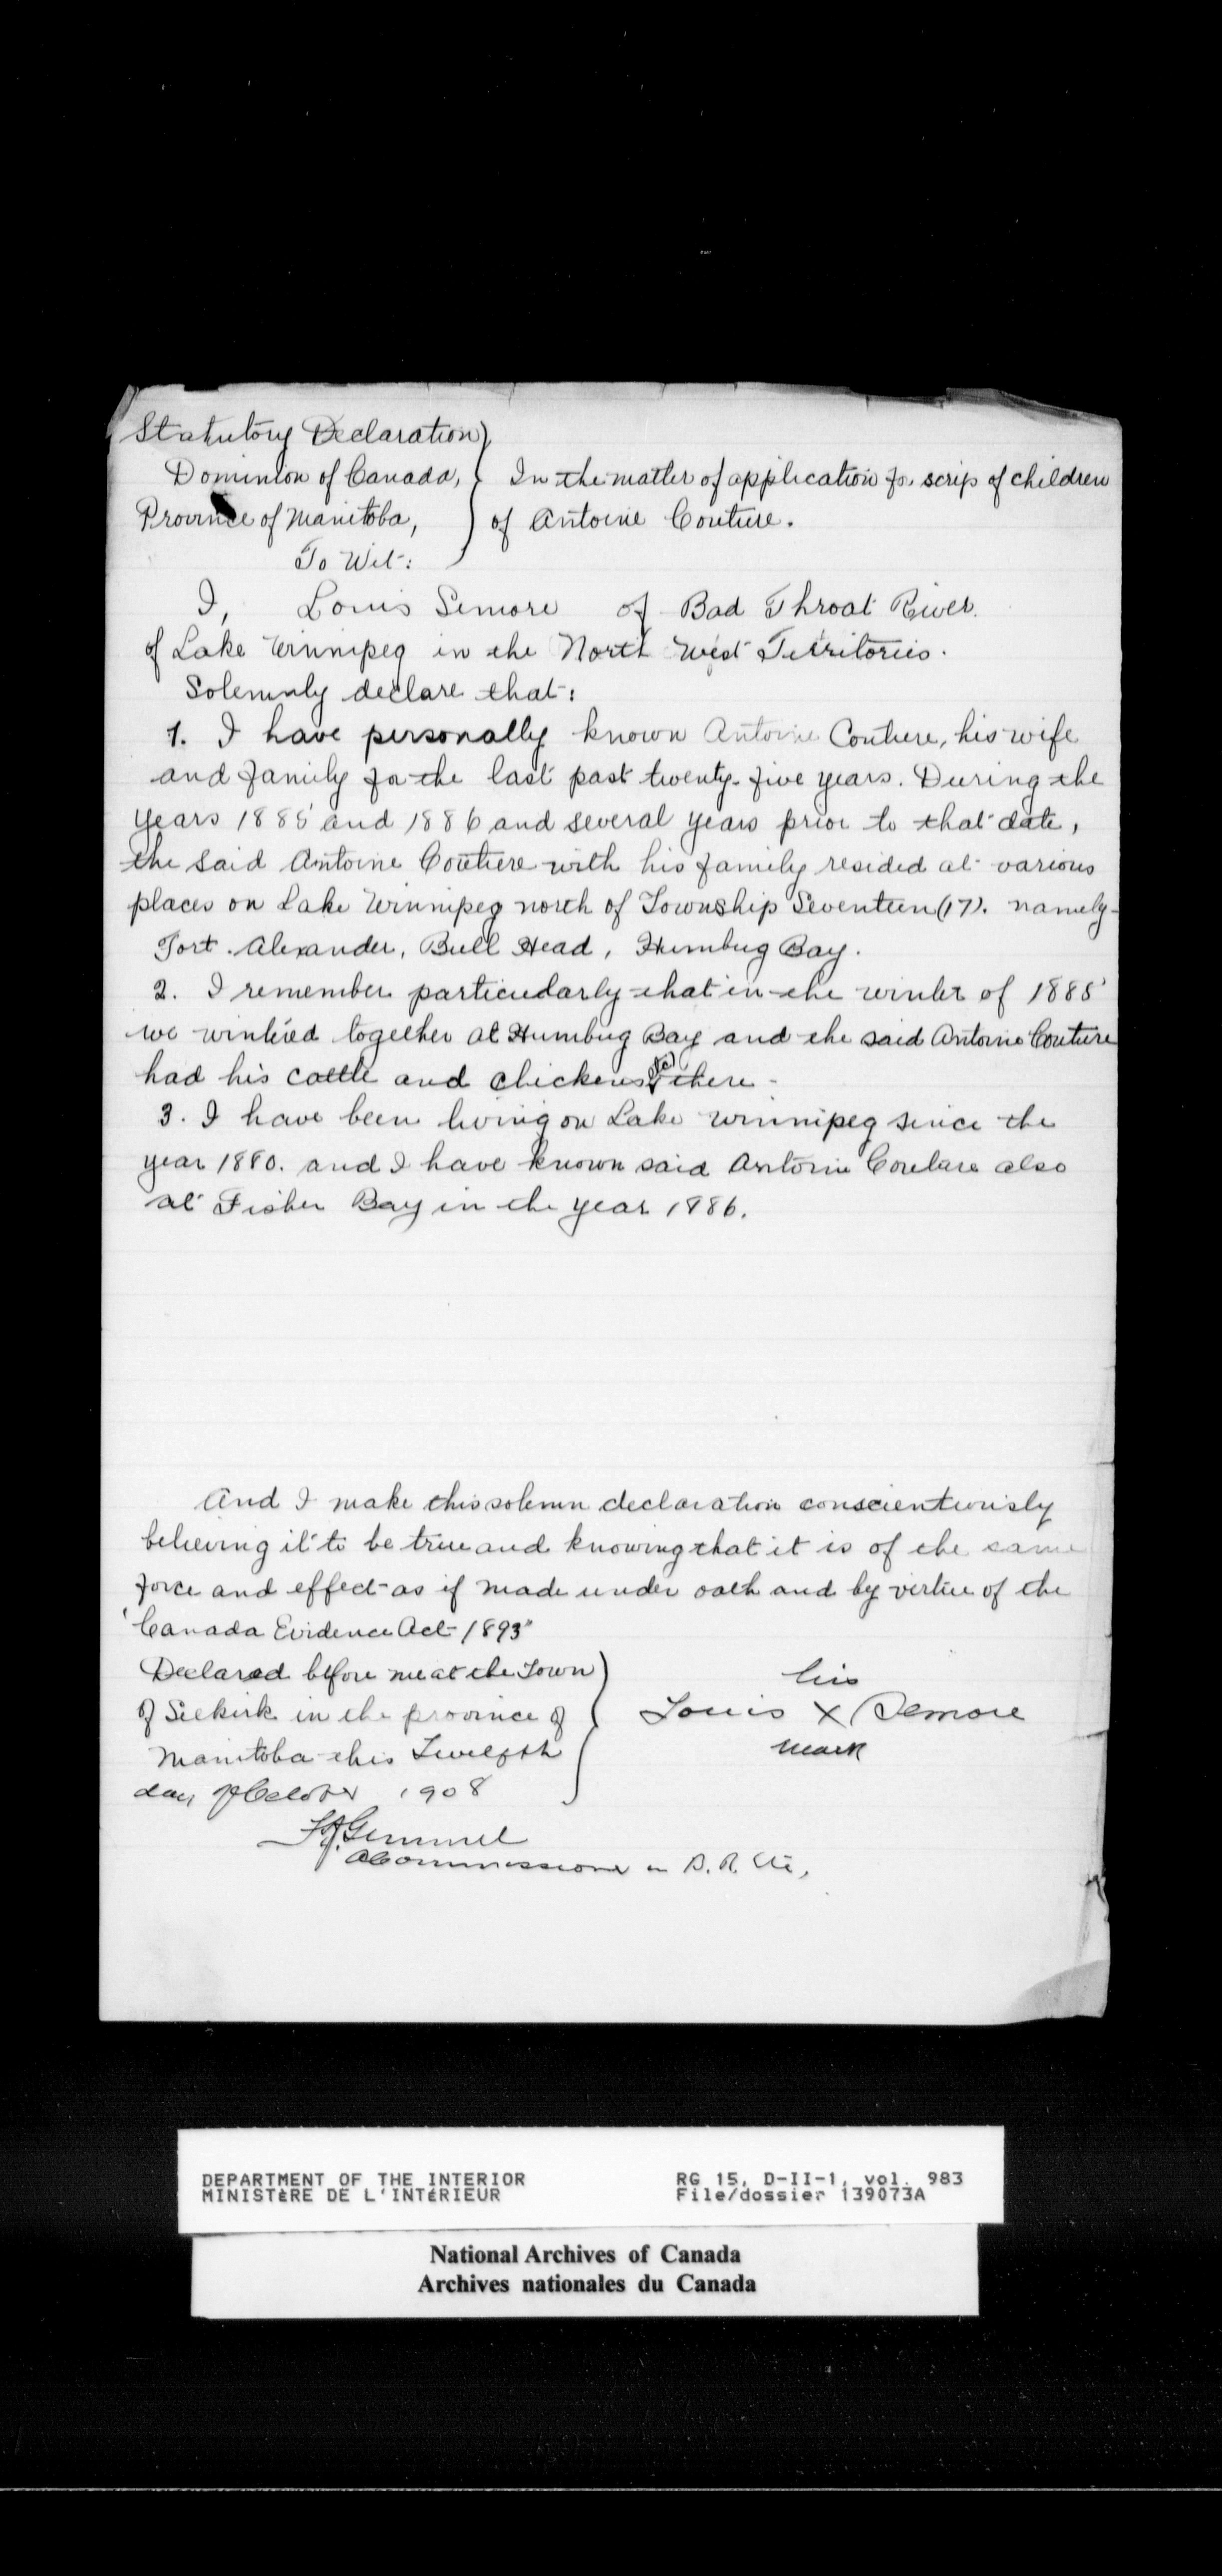 Statutory Declaration
Dominion of Canada, In the matter of application for scrip of children
Province of Manitoba, of Antoine Couture.
To Wit:
I, Louis Semore of Bad Throat River.
of Lake Winnipeg in the North West Territories.
Solemnly declare that:
1. I have personally known Antoine Couture, his wife
and family for the last past twenty-five years. During the
years 1885 and 1886 and several years prior to that date,
the said Antoine Couture with his family resided at various
places on Lake Winnipeg north of Township Seventeen (17). namely-
Fort Alexander, Bull Head, Humbug Bay.
2. I remember particularly that in the winter of 1885
we wintered together at Humbug Bay and the said Antoine Couture
had his cattle and chickens there -
3. I have been living on Lake Winnipeg since the
year 1880. and I have known said Antoine Couture also
at Fisher Bay in the year 1886.
And I make this solemn declaration conscientiously
believing it to be true and knowing that it is of the same
force and effect as if made under oath and by virtue of the
"Canada Evidence Act 1893"
Declared before me at the Town
of Selkirk in the province of
Manitoba this Twelfth
day of October 1908
his
Louis X Semore
mark
Gemmel
A Commissioner in B. R. etc,
DEPARTMENT OF THE INTERIOR RG 15, D-II-1, vol. 983
MINISTÈRE DE L'INTÉRIEUR File/dossier 139073A
National Archives of Canada
Archives nationales du Canada